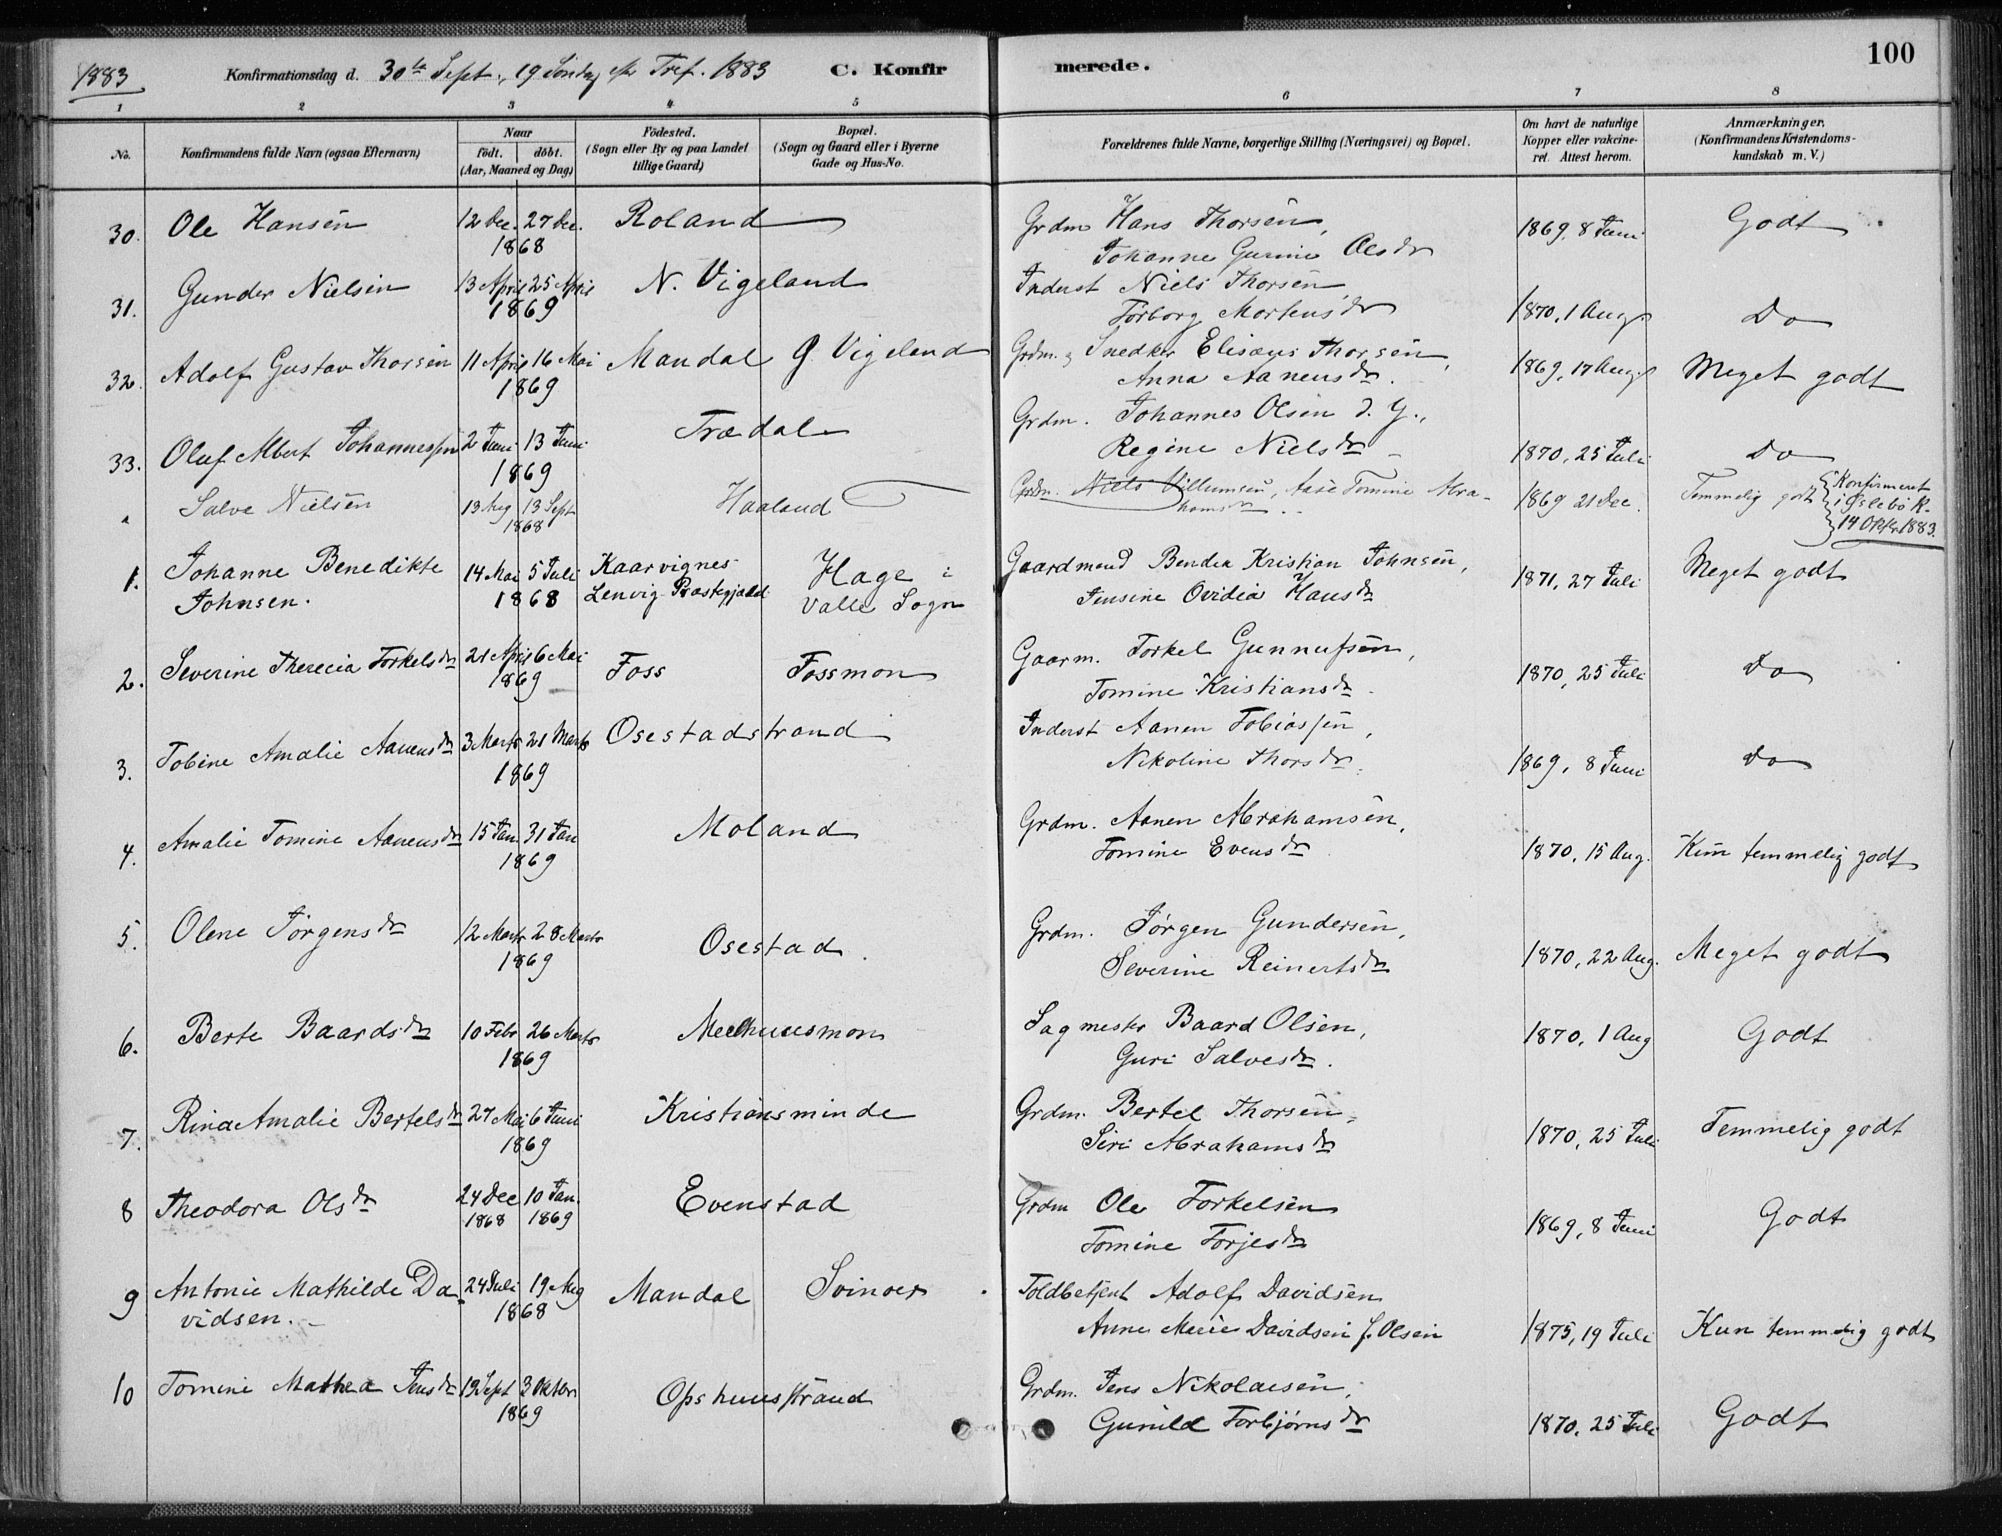 1883
Konfirmationsdag d. 30te Sept., 19 Søndag efr Tref. 1883 C. Konfirmerede. 100
1 2 3 4 5 6 7 8
No. Konfirmandens fulde Navn (ogsaa Efternavn) Naar födt. döbt. (Aar, Maaned og Dag) Födested. (Sogn eller By og paa Landet tillige Gaard) Bopæl. (Sogn og Gaard eller i Byerne Gade og Hus-No. Forældrenes fulde Navne, borgerlige Stilling (Næringsvei) og Bopæl. Om havt de naturlige Kopper eller vakcineret. Attest herom. Anmærkninger. (Konfirmandens Kristendomskundskab m. V.)
30. Ole Hansen 12 Dec. 27 Dec. 1868 Roland Grdm Hans Thorsen, 1869, 8 Juni Godt
Johanne Gurine Olsdr
31. Gunder Nielsen 13 April 25 April 1869 N. Vigeland Inderst Niels Thorsen, 1870, 1 Aug. Do
Torborg Mortensdr
32. Adolf Gustav Thorsen 11 April 16 Mai 1869 Mandal G. Vigeland Grdm. & Snedker Elisæus Thorsen, 1869, 17 Aug. Meget godt
Anna Aanensdr.
33. Oluf Albert Johannessen 2 Juni 13 Juni 1869 Trædal Grdm. Johannes Olsen d. y., 1870, 25 Juli Do
Regine Nielsdr
Salve Nielsen 13 Aug 13 Sept 1868 Haaland Grdm. Niels Villumsen, Aase Tomine Abrahamsdr 1869 21 Dec. Temmelig godt {Konfirmeret i Øslebö K. 14 Oktr. 1883.
1. Johanne Benedikte Johnsen. 14 Mai 5 Juli 1868 Kaarvignes Lenvig Præstegjæld Hage i Valle Sogn Gaardmand Bendix Kristian Johnsen, 1871, 27 Juli Meget godt
Jensine Ovidia Hansdr
2. Severine Therecia Torkelsdr 21 April 6 Mai 1869 Foss Fossmon Gaarm. Torkel Gunnufsen, 1870, 25 Juli Do
Tomine Kristiansdr
3. Tobine Amalie Aanensdr 3 Marts 21 Marts 1869 Osestadstrand Inderst Aanen Tobiassen, 1869, 8 Juni Do
Nikoline Thorsdr.
4. Amalie Tomine Aanensdr 15 Jan 31 Jan 1869 Moland Grdm. Aanen Abrahamsen, 1870, 15 Aug. Kun temmelig godt
Tomine Evensdr
5. Olene Jörgensdr 12 Marts 28 Marts 1869 Osestad. Grdm. Jörgen Gundersen, 1870, 22 Aug. Meget godt
Severine Reinertsdr
6. Berte Baardsdr 10 Febr 26 Marts 1869 Meelhuusmon Sagmester Baard Olsen, 1870, 1 Aug Godt
Guri Salvesdr.
7. Rina Amalie Bertelsdr 27 Mai 6 Juni 1869 Kristiansminde Grdm. Bertel Thorsen, 1870, 25 Juli Temmelig godt
Siri Abrahamsdr
8 Theodora Olsdr 24 Dec 1868 10 Jan. 1869 Evenstad Grdm Ole Torkelsen 1869, 8 Juni Godt
Tomine Torjesdr
9 Antonie Mathilde Davidsen. 24 Juli 19 Aug 1868 Mandal Svinoer Toldbetjent Adolf Davidsen
Anne Marie Davidsen f. Olsen 1875, 19 Juli Kun temmelig godt
10 Tomine Mathea Jensdr 19 Sept 3 Oktbr 1869 Opshuusstrand Grdm. Jens Nikolaisen, 1870, 25 Juli Godt
Gunild Torbjörnsdr